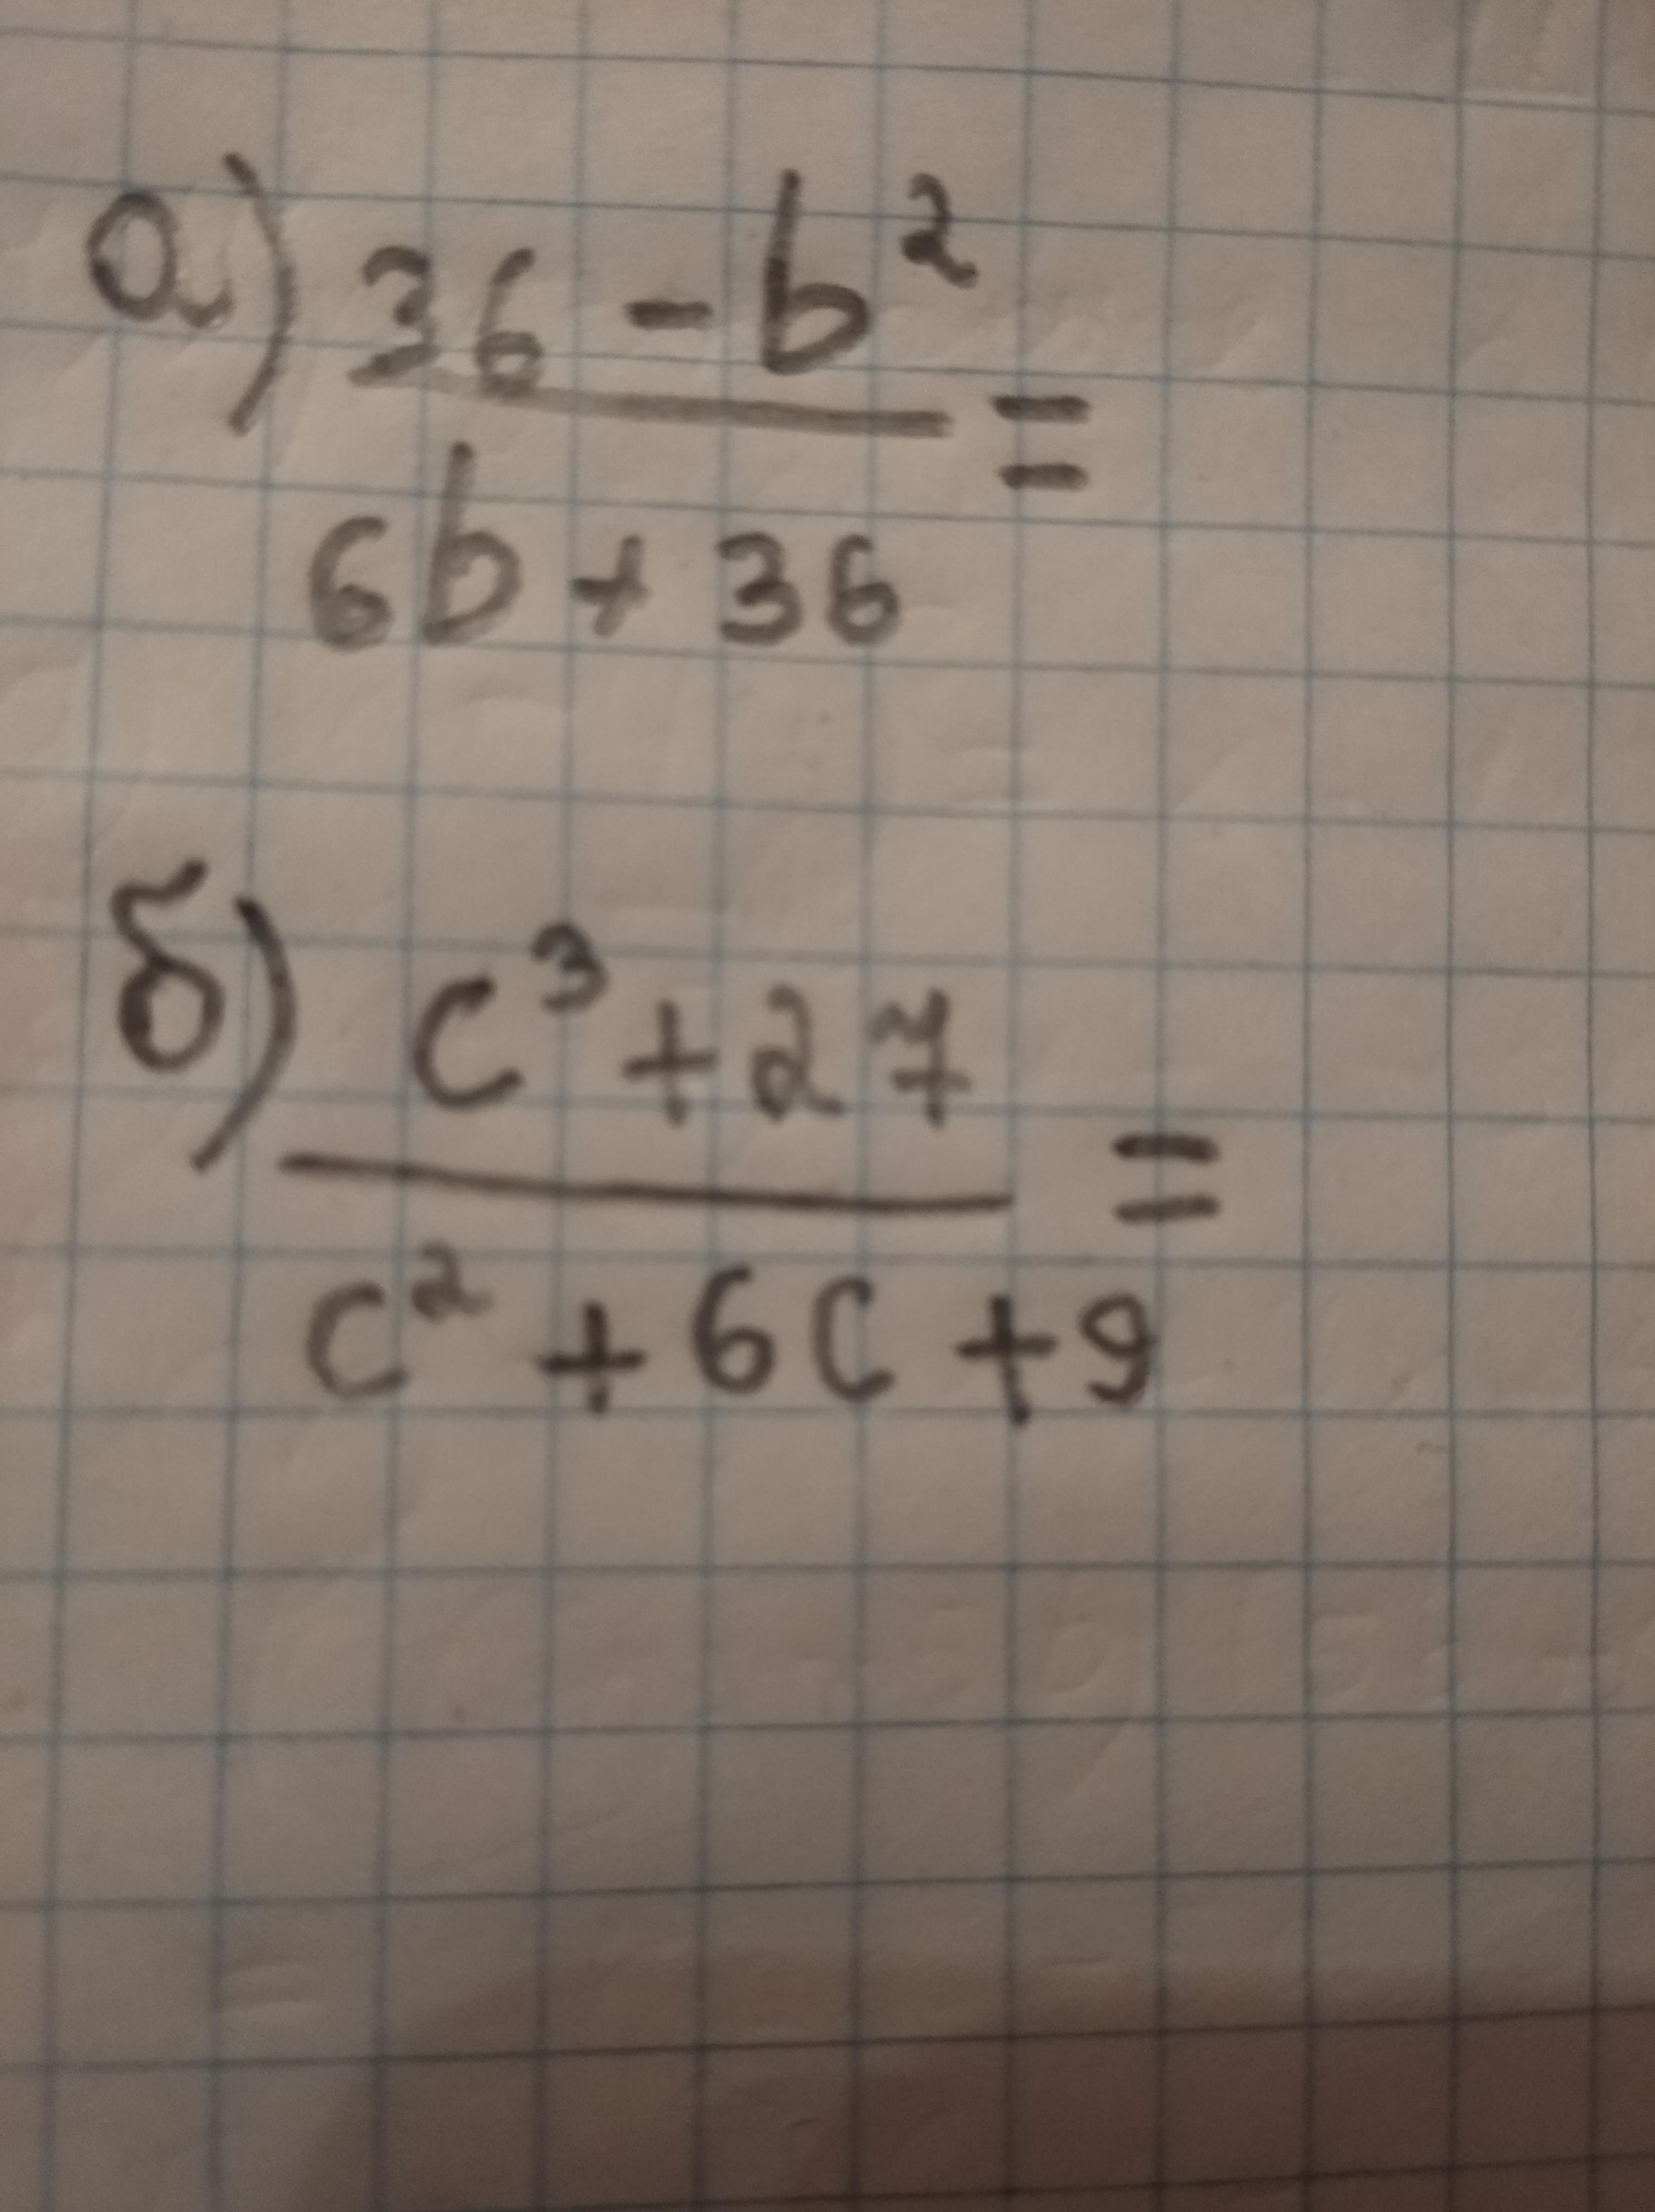 а) 36 - b²
=
6b + 36
б) c³ + 27
=
c² + 6c + 9